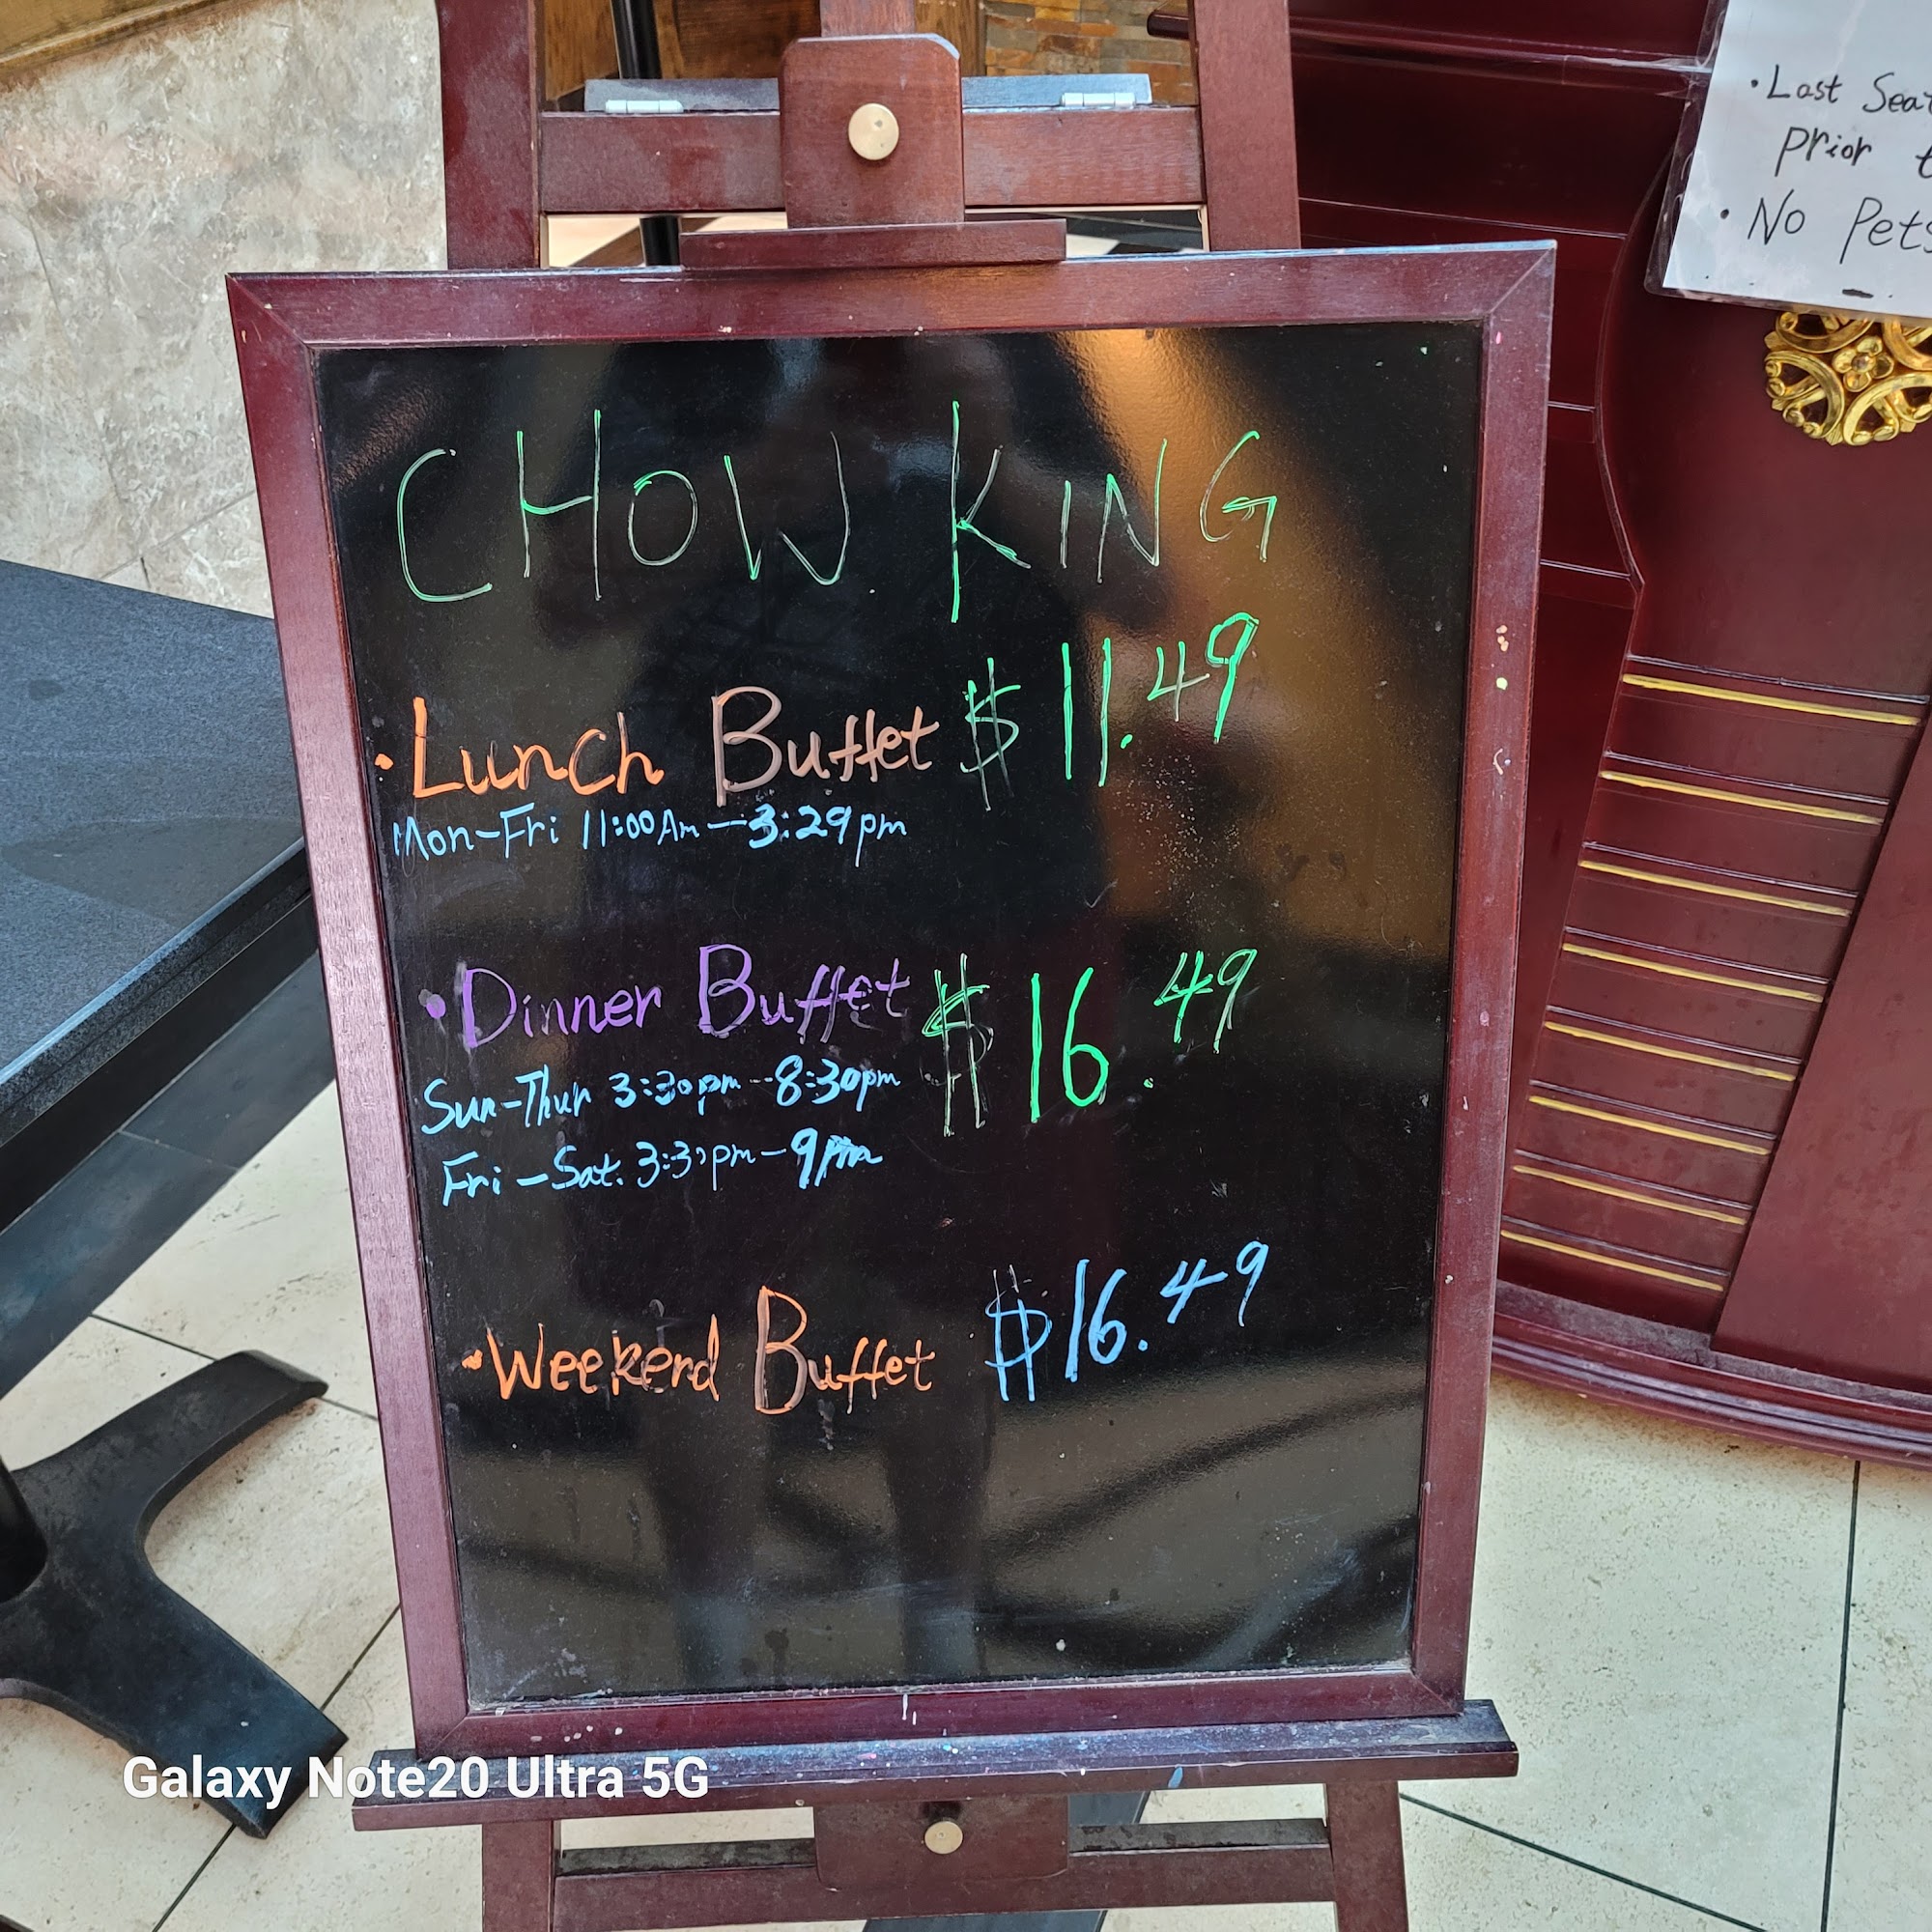 CHOW KING
• Lunch Buffet $ 11.49
Mon-Fri 11:00 Am - 3:29 pm
• Dinner Buffet $ 16.49
Sun-Thur 3:30pm - 8:30pm
Fri - Sat. 3:30pm - 9pm
• Weekend Buffet $16.49
• Last
Prior
• No Pets
Galaxy Note20 Ultra 5G